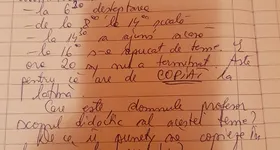 - la 6³⁰ deșteptarea
- de la 8⁰⁰ la 14⁰⁰ școală
- la 14³⁰ a ajuns acasă
- la 16⁰⁰ s-a apucat de teme. Și
ora 20 și nu a terminat. Asta
pentru că are de COPIAT la
latină
Care este, domnule profesor
scopul didactic al acestei teme?
De ce îi puneți să copieze